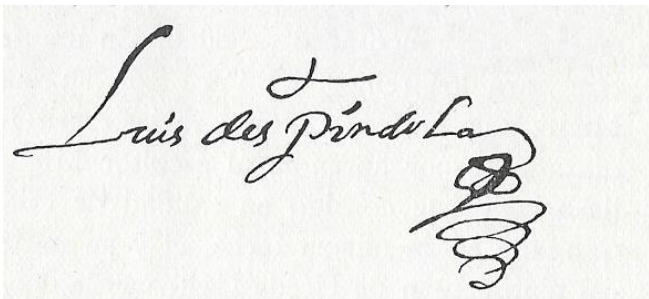 Luis des pindola